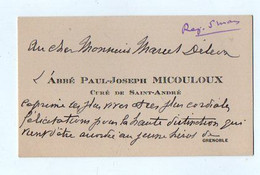 Reç. 5 mars
Au cher Monsieur Marcel
L'ABBÉ PAUL-JOSEPH MICOULOUX
CURÉ DE SAINT-ANDRÉ
exprime les plus vives et les plus cordiales
félicitations pour la haute distinction qui
vient d'être accordée au jeune héros
GRENOBLE